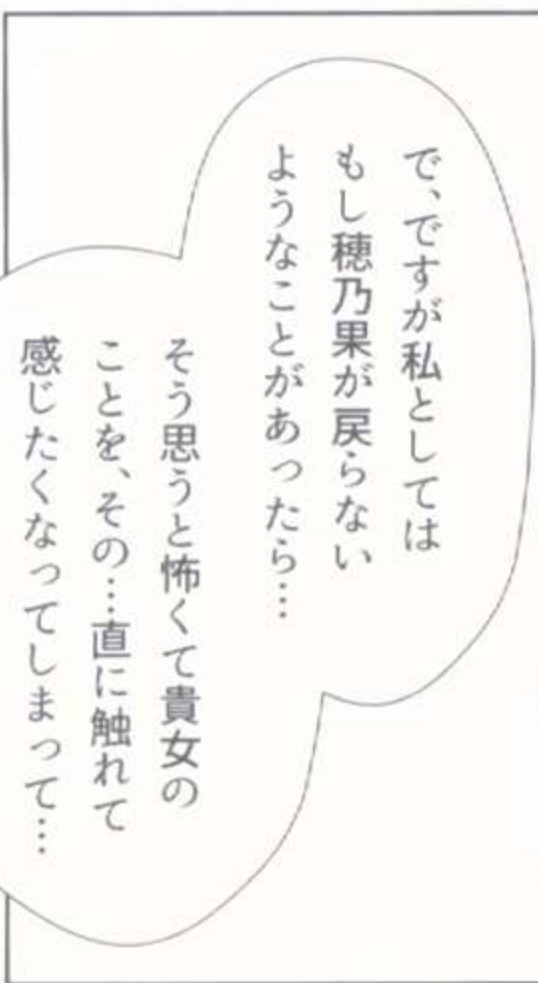 で、ですが私としては
もし穂乃果が戻らない
ようなことがあったら…
そう思うと怖くて貴女の
ことを、その…直に触れて
感じたくなってしまって…